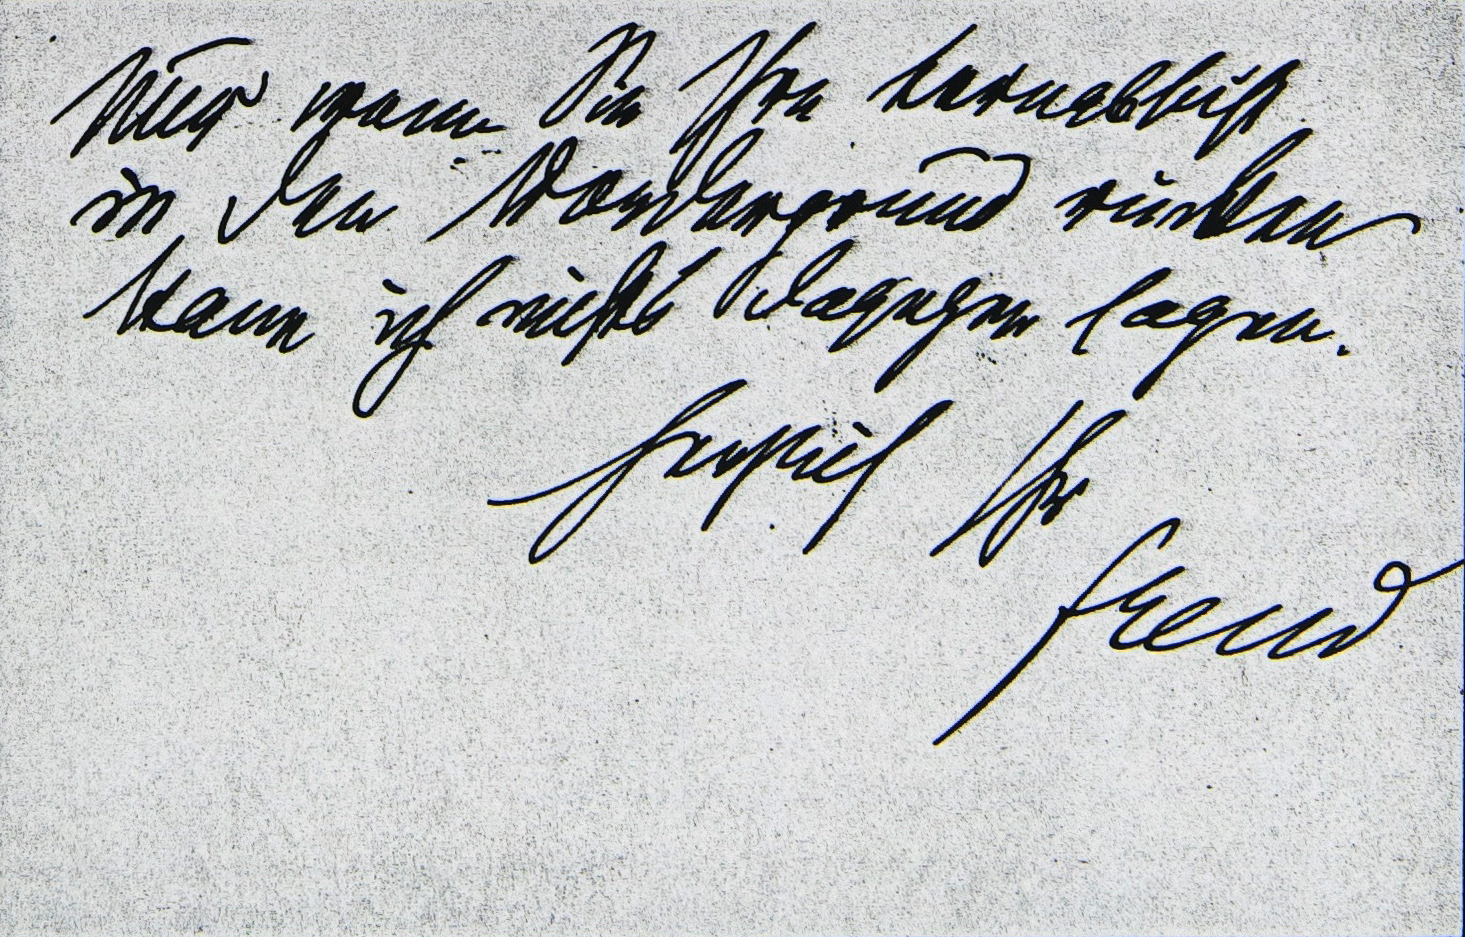 Nur wenn Sie Ihre
in den Vordergrund rücken
kann ich nichts dagegen sagen.
Herzlich Ihr
Freud